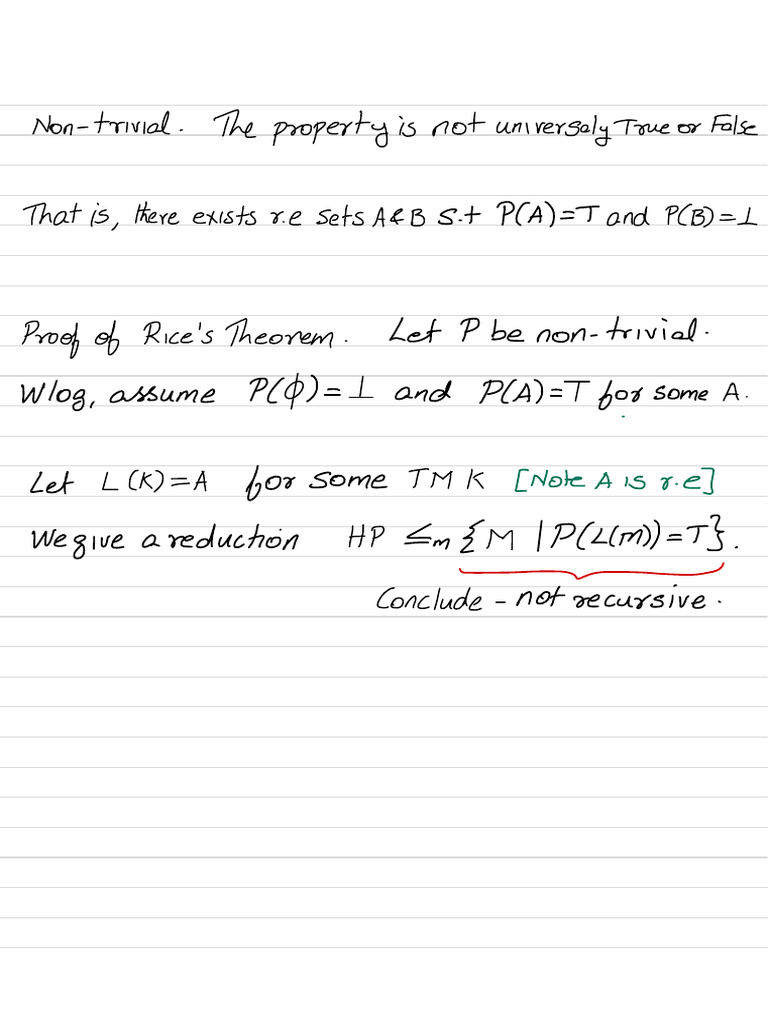 Non-trivial. The property is not universaly True or False
That is, there exists r.e sets A & B s.t P(A)=T and P(B)=⊥
Proof of Rice's Theorem. Let P be non-trivial.
Wlog, assume P(ϕ)=⊥ and P(A)=T for some A.
Let L(K)=A for some TM K [Note A is r.e]
We give a reduction HP ≤m {M | P(L(M))=T}.
Conclude - not recursive.